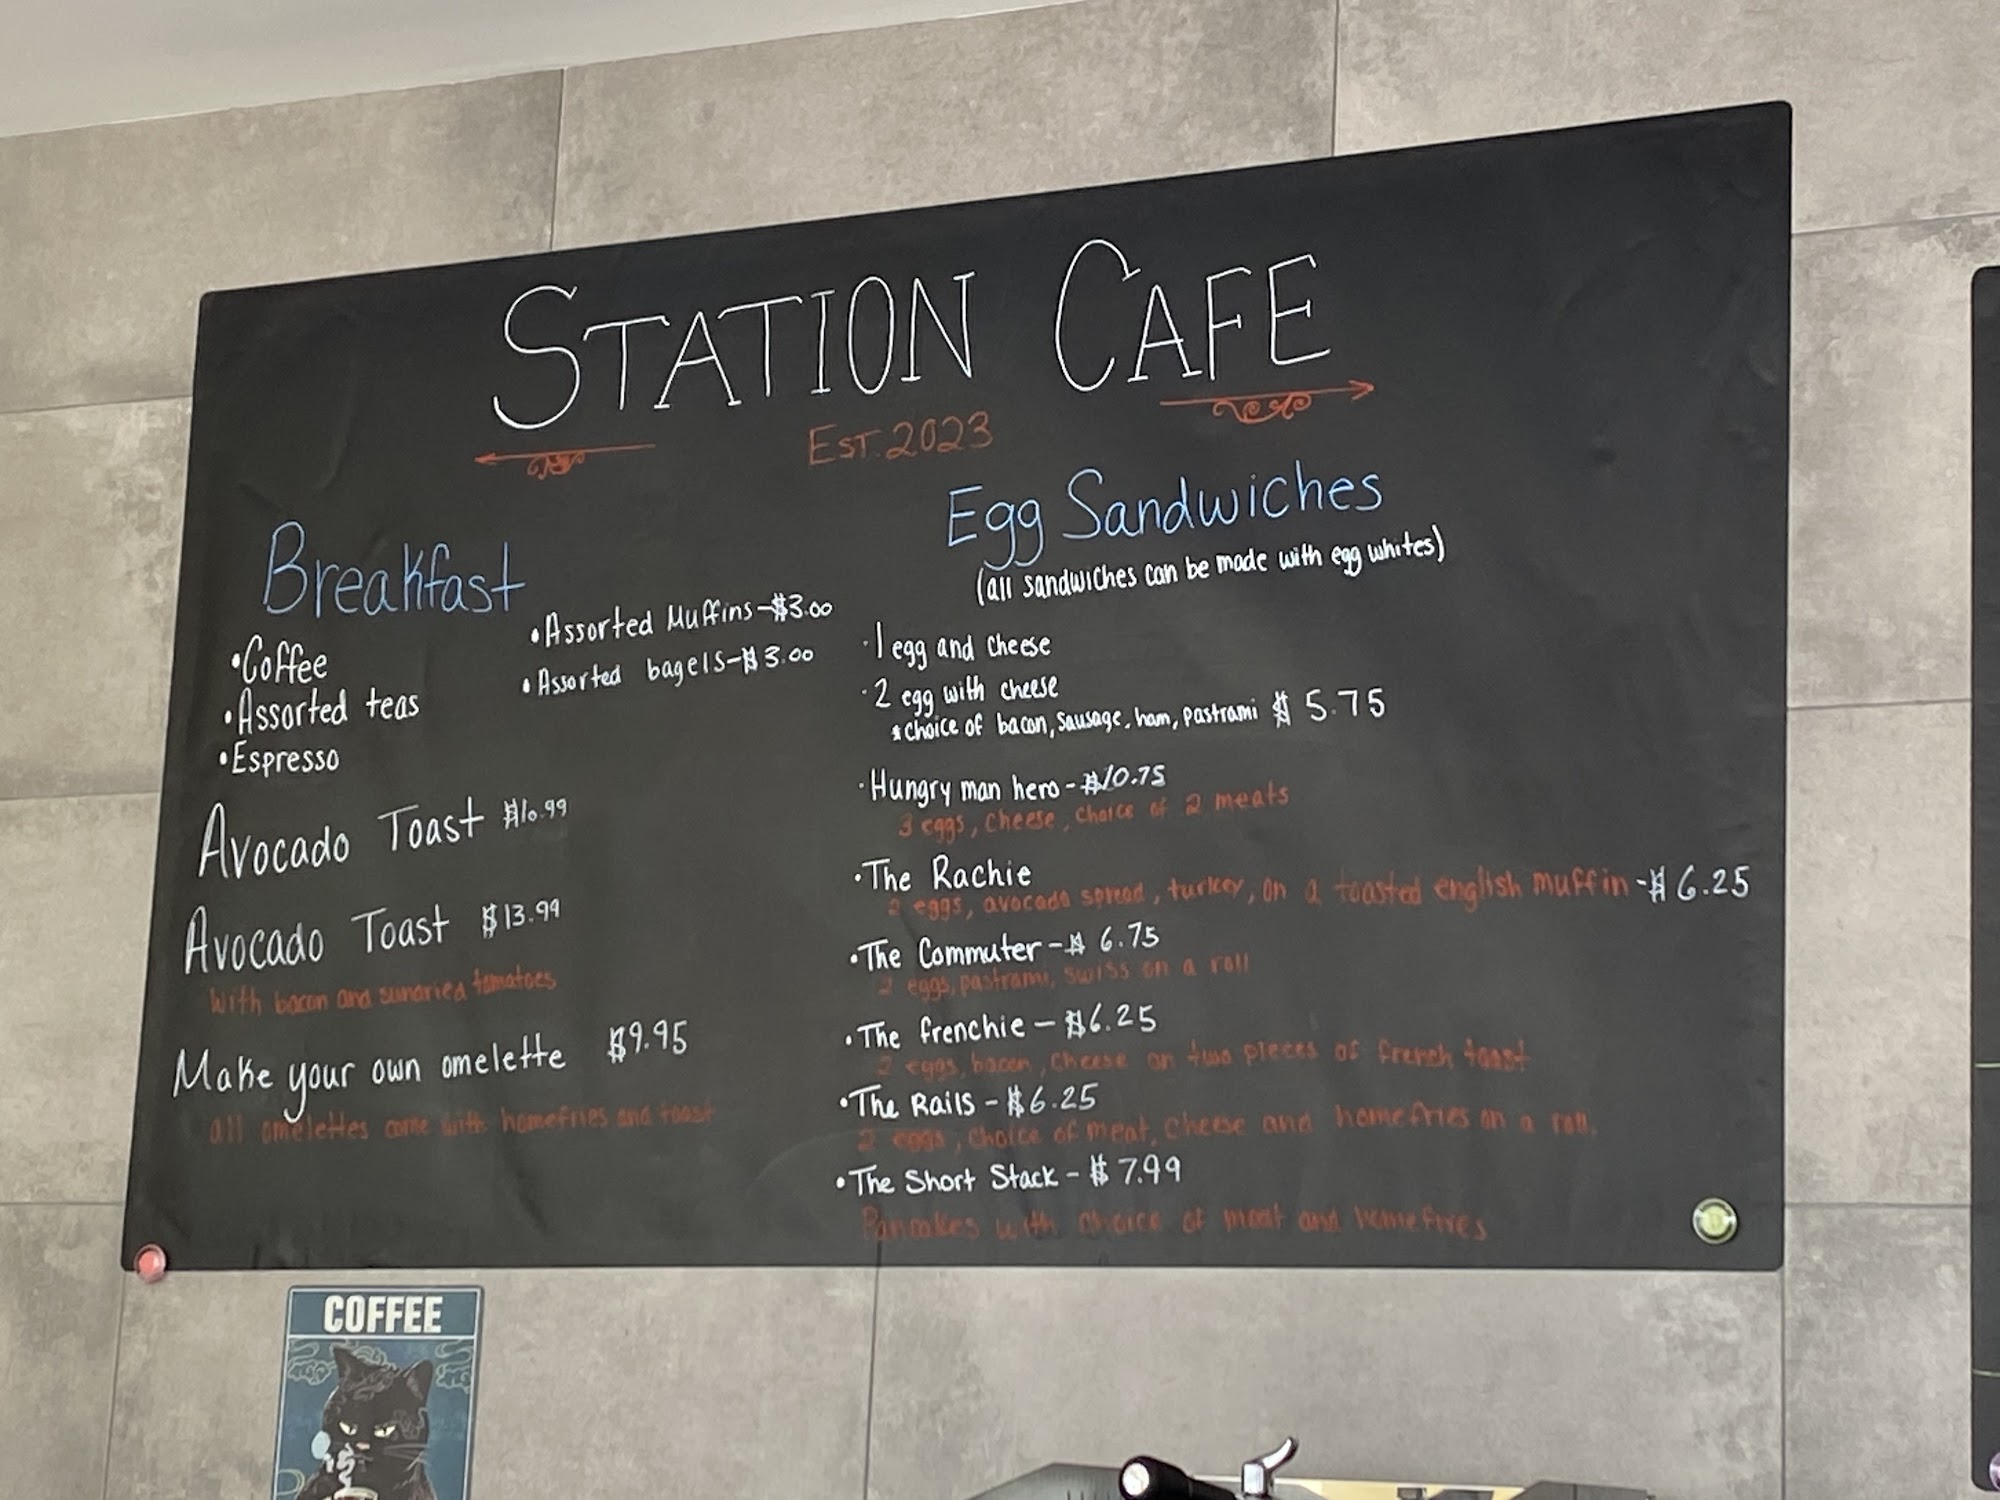 STATION CAFE
EST. 2023
Breakfast
•Coffee
•Assorted teas
•Espresso
•Assorted Muffins-$3.00
•Assorted bagels-$3.00
Avocado Toast $10.99
Avocado Toast $13.99
with bacon and sundried tomatoes
Make your own omelette $9.95
all omelettes come with homefries and toast
Egg Sandwiches
(all sandwiches can be made with egg whites)
·1 egg and cheese
·2 egg with cheese
*choice of bacon, sausage, ham, pastrami $5.75
·Hungry man hero-$10.75
3 eggs, cheese, choice of 2 meats
·The Rachie
2 eggs, avocado spread, turkey, on a toasted english muffin-$6.25
•The Commuter-$6.75
2 eggs, pastrami, swiss on a roll
•The frenchie-$6.25
2 eggs, bacon, cheese on two pieces of french toast
•The Rails-$6.25
2 eggs, choice of meat, cheese and homefries on a roll.
•The Short Stack-$7.99
Pancakes with choice of meat and homefries
COFFEE